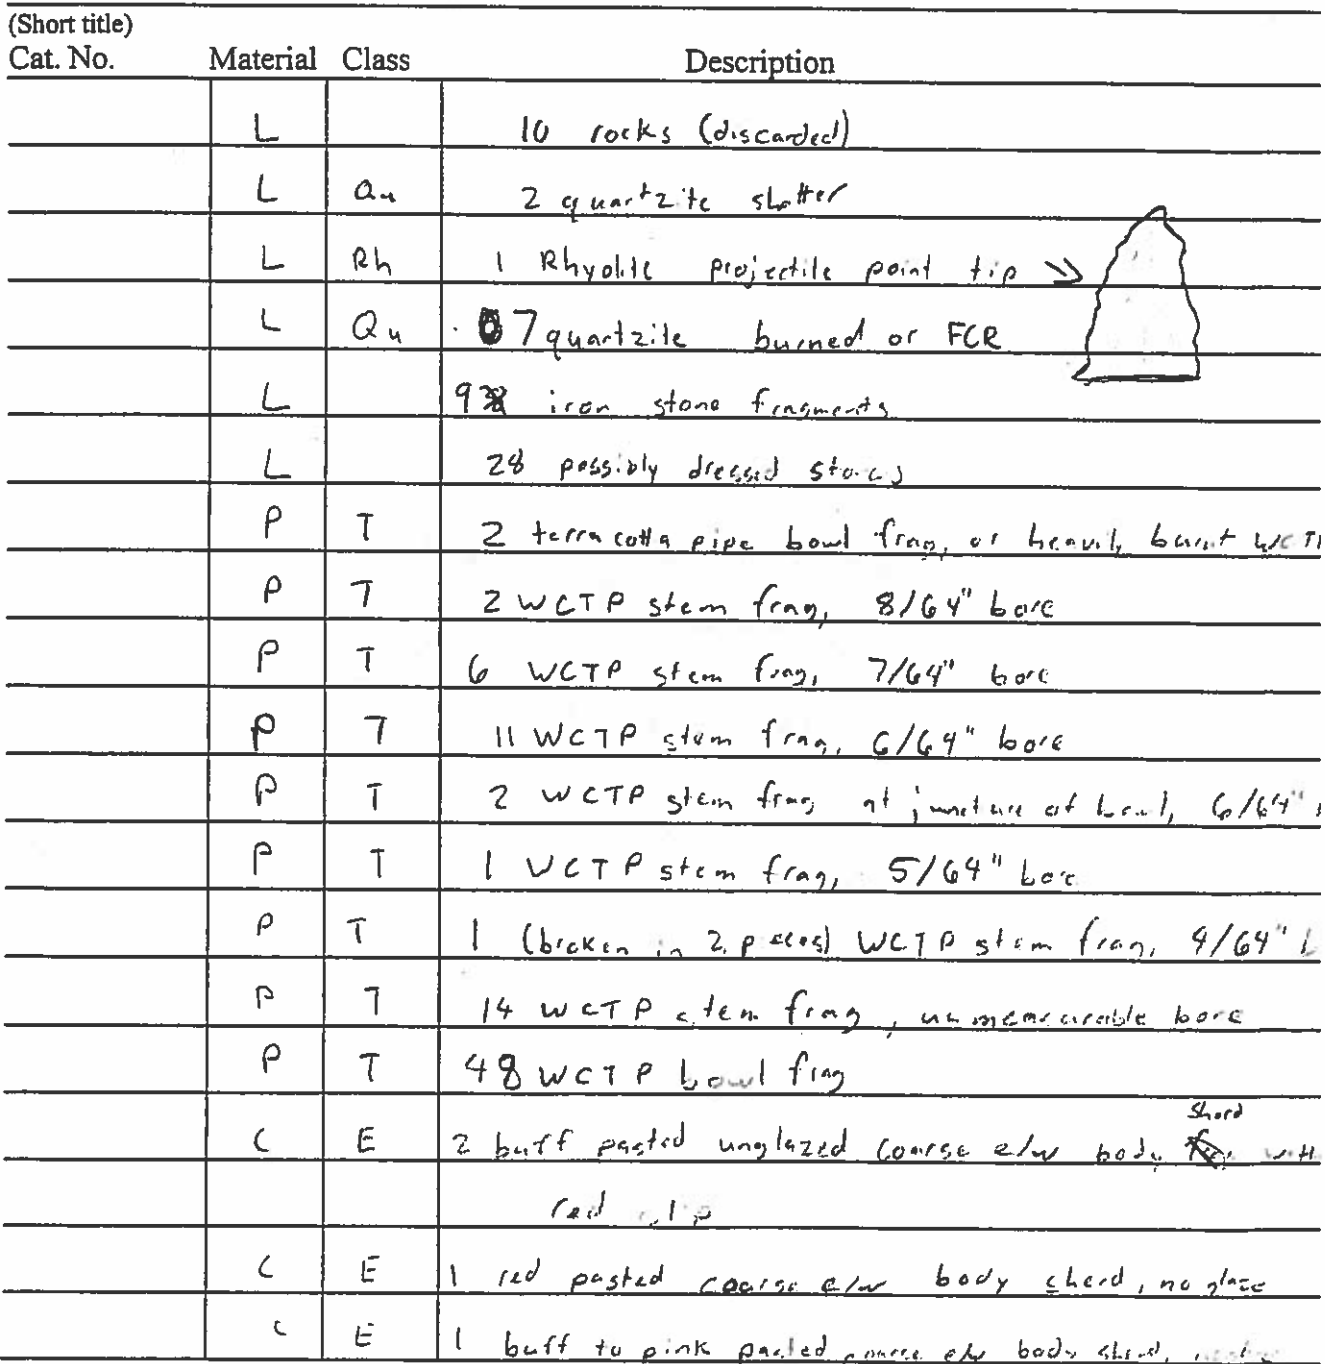 (Short title)
Cat. No. Material Class Description
L 10 rocks (discarded)
L Qu 2 quartzite shatter
L Rh 1 Rhyolite projectile point tip →
L Qu 7 quartzite burned or FCR
L 9 iron stone fragments
L 28 possibly dressed stones
P T 2 terra cotta pipe bowl frag, or heavily burnt
P T 2 WCTP stem frag, 8/64" bore
P T 6 WCTP stem frag, 7/64" bore
P T 11 WCTP stem frag, 6/64" bore
P T 2 WCTP stem frag at juncture of bowl, 6/64"
P T 1 WCTP stem frag, 5/64" bore
P T 1 (broken in 2 pieces) WCTP stem frag, 4/64"
P T 14 WCTP stem frag, unmeasurable bore
P T 48 WCTP bowl frag
C E 2 buff pasted unglazed coarse e/w body sherd with
red slip
C E 1 red pasted coarse e/w body sherd, no glaze
C E 1 buff to pink pasted coarse e/w body sherd,